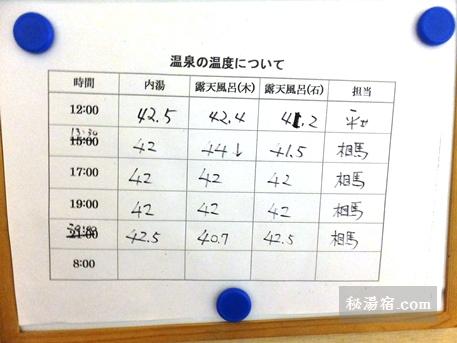 温泉の温度について
時間 内湯 露天風呂(木) 露天風呂(石) 担当
12:00 42.5 42.4 41.2
13:30
15:00 42 44↓ 41.5 相馬
17:00 42 42 42 相馬
19:00 42 42 42 相馬
21:00 42.5 40.7 42.5 相馬
8:00
秘湯宿.com